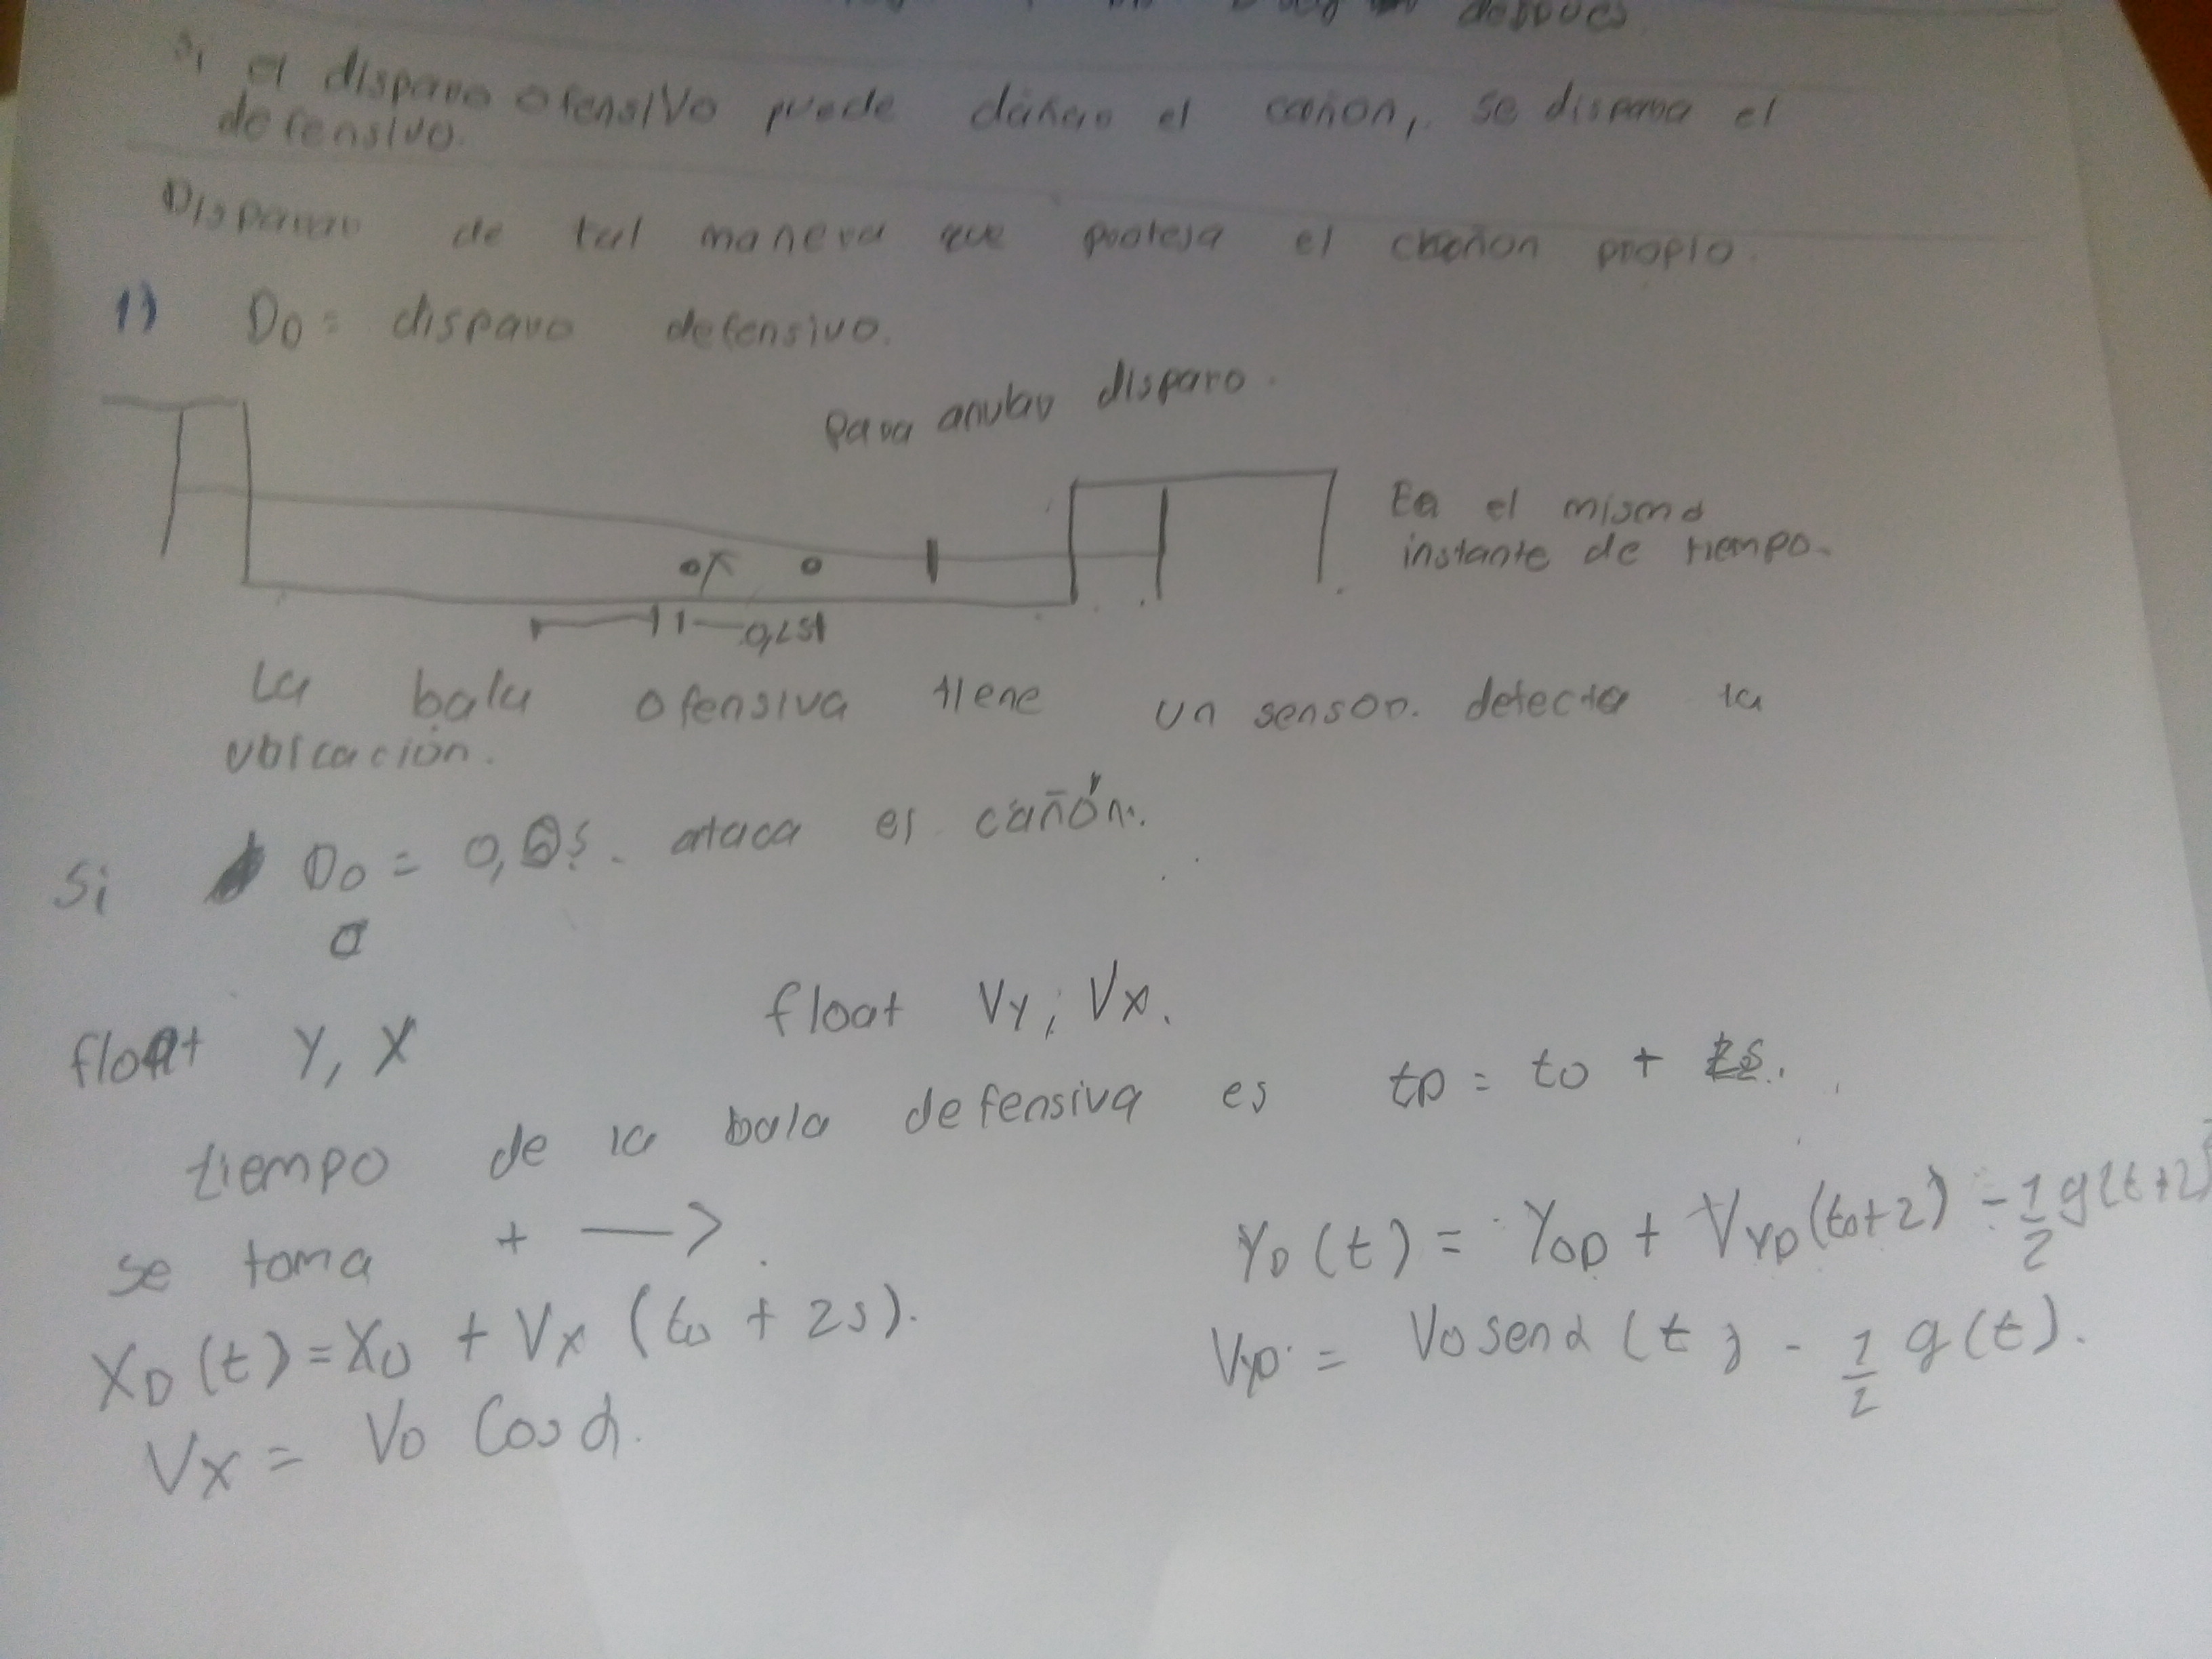 despues.
Si el disparo ofensivo puede dañar el cañon, se dispara el
defensivo.
Disparar de tal manera que proteja el cañon propio.
1) DO = disparo defensivo.
Para anular disparo.
En el mismo
instante de tiempo.
0,25
La bala ofensiva tiene un sensor. detecta la
ubicación.
Si DO = 0, ataca el cañón.
float Y, X
float Vy; Vx.
tiempo de la bala defensiva es tD = to +
se toma + →.
YD(t) = YOD + VYD(to+2) - 1/2 g(t+2)²
XD(t) = XO + Vx (to + 2s).
VyD = Vo sen α (t) - 1/2 g(t).
Vx = Vo Cos α.